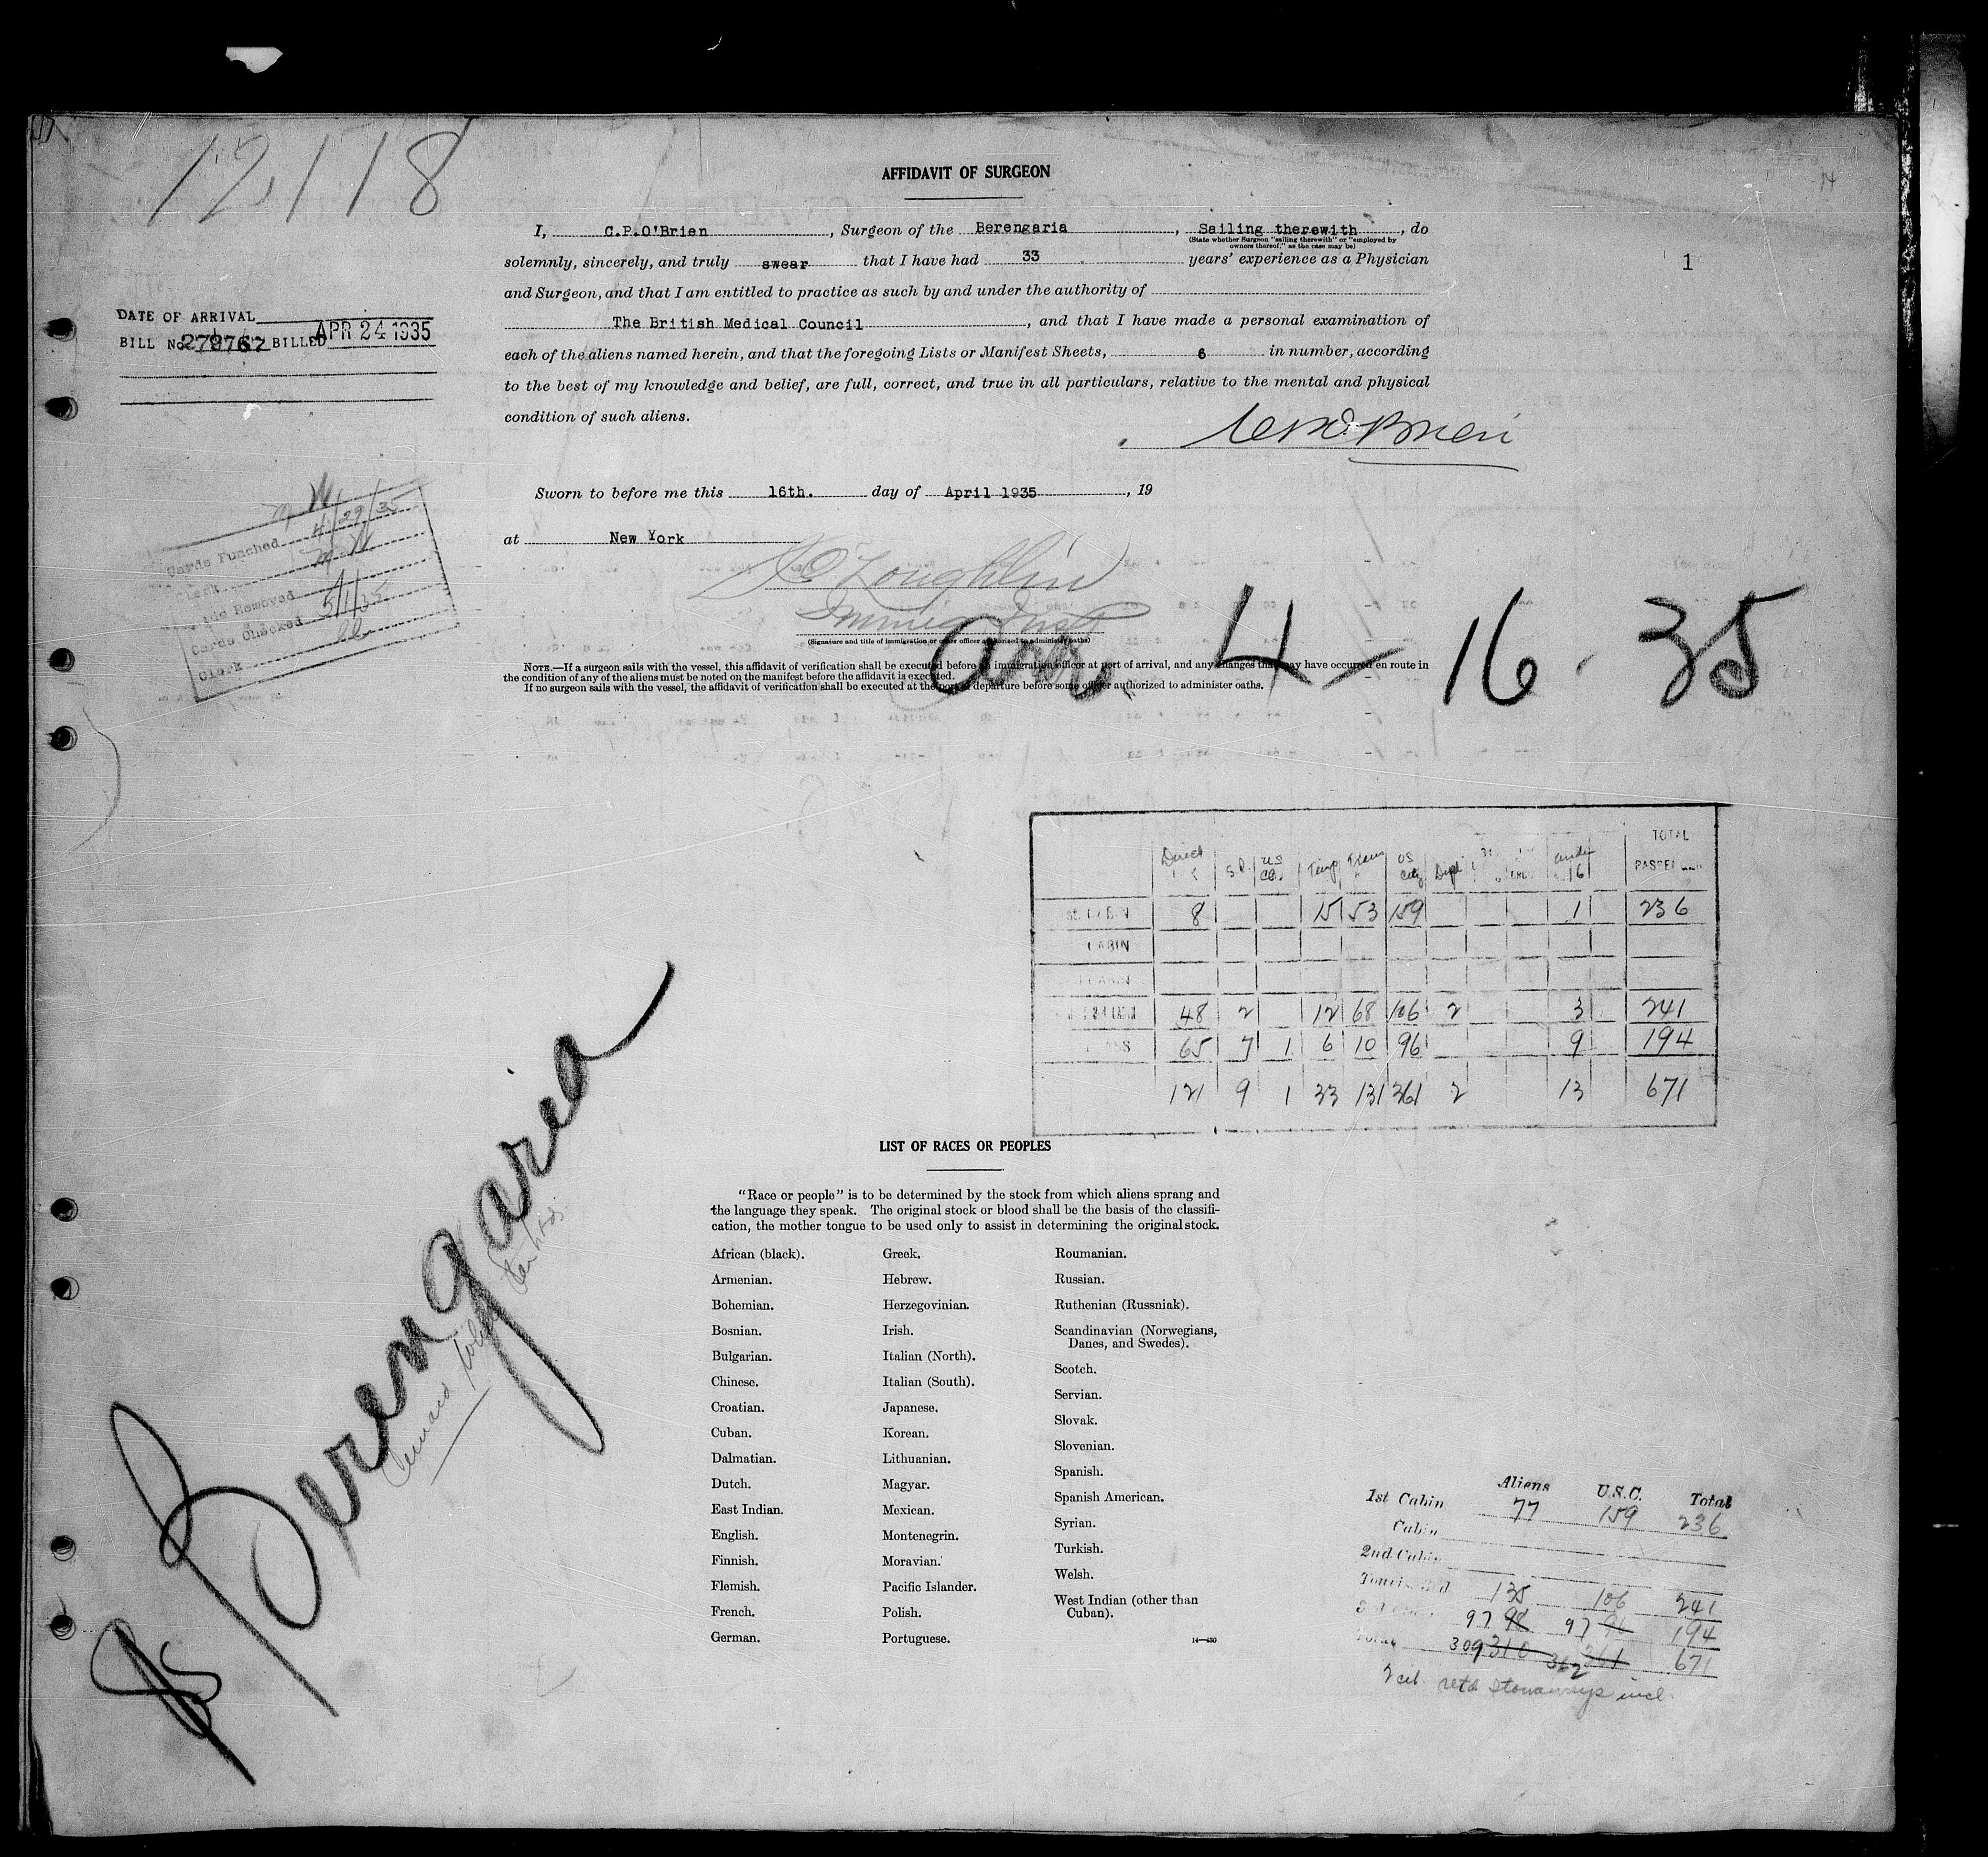 12,118
14
AFFIDAVIT OF SURGEON
I, C.P.O'Brien, Surgeon of the Berengaria, Sailing therewith, do
(State whether Surgeon "sailing therewith" or "employed by
owners thereof," as the case may be)
solemnly, sincerely, and truly swear that I have had 33 years' experience as a Physician
1
and Surgeon, and that I am entitled to practice as such by and under the authority of
The British Medical Council, and that I have made a personal examination of
each of the aliens named herein, and that the foregoing Lists or Manifest Sheets, 6 in number, according
to the best of my knowledge and belief, are full, correct, and true in all particulars, relative to the mental and physical
condition of such aliens.
DATE OF ARRIVAL
BILL No. BILLED APR 24 1935
Sworn to before me this 16th. day of April 1935, 19
at New York
Cards Punched 4/29/35
Clerk
Removed
Cards Checked 5/1/35
Clerk
(Signature and title of immigration or other officer authorized to administer oaths)
Arr. 4-16-35
NOTE.—If a surgeon sails with the vessel, this affidavit of verification shall be executed before an immigration officer at port of arrival, and any changes that may have occurred en route in
the condition of any of the aliens must be noted on the manifest before the affidavit is executed.
If no surgeon sails with the vessel, the affidavit of verification shall be executed at the port of departure before some officer authorized to administer oaths.
Direct S.P. US Temp Trans US Dipl under 16 TOTAL
8 15 53 159 1 236
CABIN
48 2 12 68 106 2 3 241
65 7 1 6 10 96 9 194
121 9 1 33 131 361 2 13 671
SS Berengaria
LIST OF RACES OR PEOPLES
"Race or people" is to be determined by the stock from which aliens sprang and
the language they speak. The original stock or blood shall be the basis of the classifi-
cation, the mother tongue to be used only to assist in determining the original stock.
African (black).
Armenian.
Bohemian.
Bosnian.
Bulgarian.
Chinese.
Croatian.
Cuban.
Dalmatian.
Dutch.
East Indian.
English.
Finnish.
Flemish.
French.
German.
Greek.
Hebrew.
Herzegovinian.
Irish.
Italian (North).
Italian (South).
Japanese.
Korean.
Lithuanian.
Magyar.
Mexican.
Montenegrin.
Moravian.
Pacific Islander.
Polish.
Portuguese.
Roumanian.
Russian.
Ruthenian (Russniak).
Scandinavian (Norwegians,
Danes, and Swedes).
Scotch.
Servian.
Slovak.
Slovenian.
Spanish.
Spanish American.
Syrian.
Turkish.
Welsh.
West Indian (other than
Cuban).
14—430
Aliens U.S.C. Total
1st Cabin 77 159 236
Cabin
2nd Cabin
135 106 241
97 98 97 96 194
Total 309 310 362 361 671
incl.